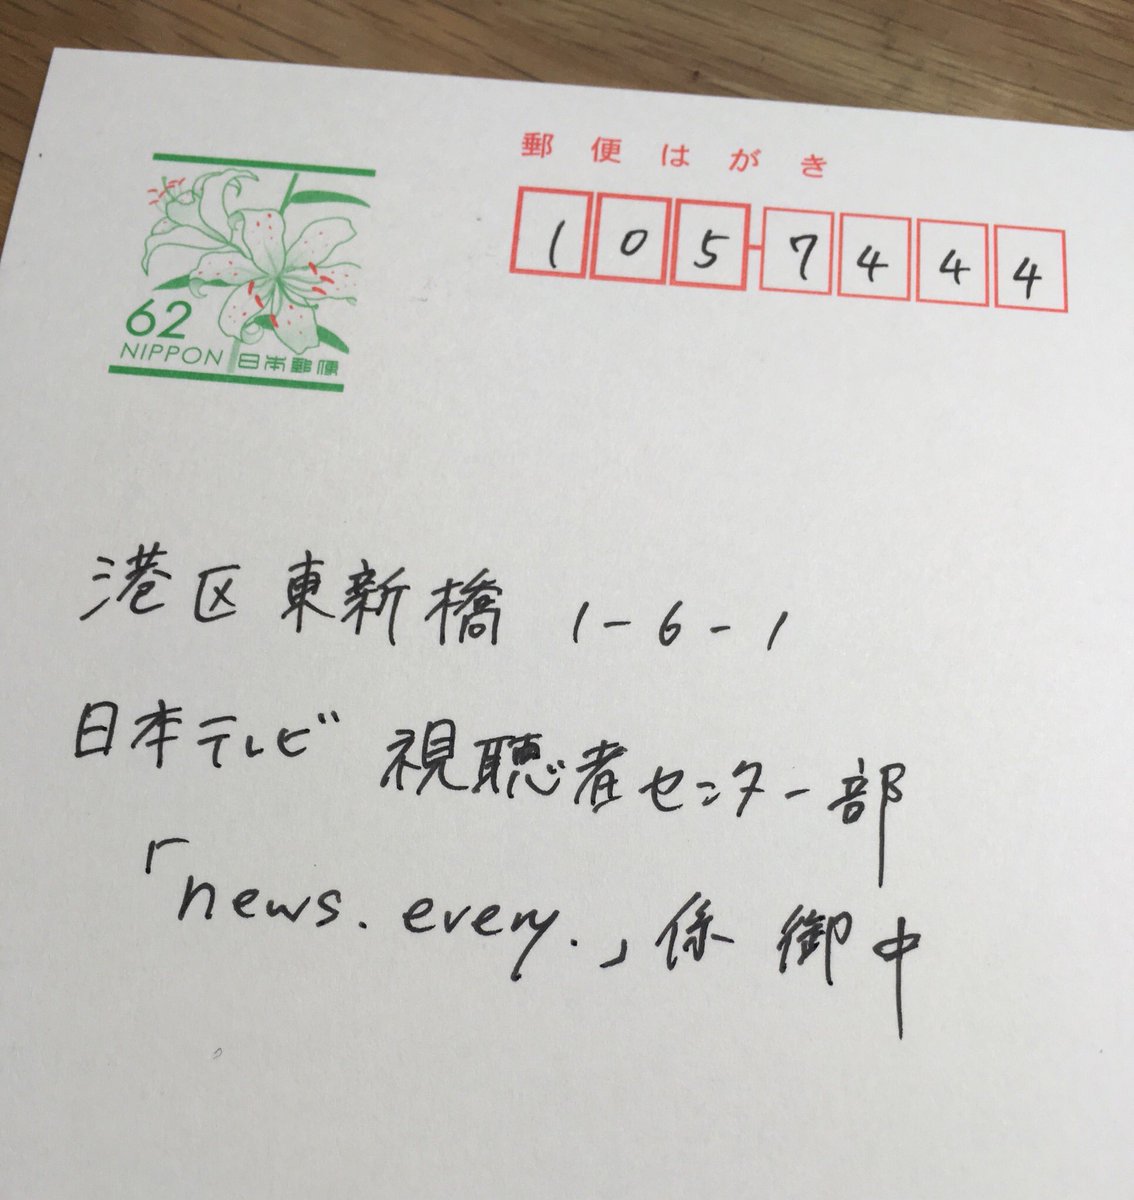 郵便はがき
105-7444
62
NIPPON 日本郵便
港区東新橋 1-6-1
日本テレビ 視聴者センター部
「news.every.」係 御中